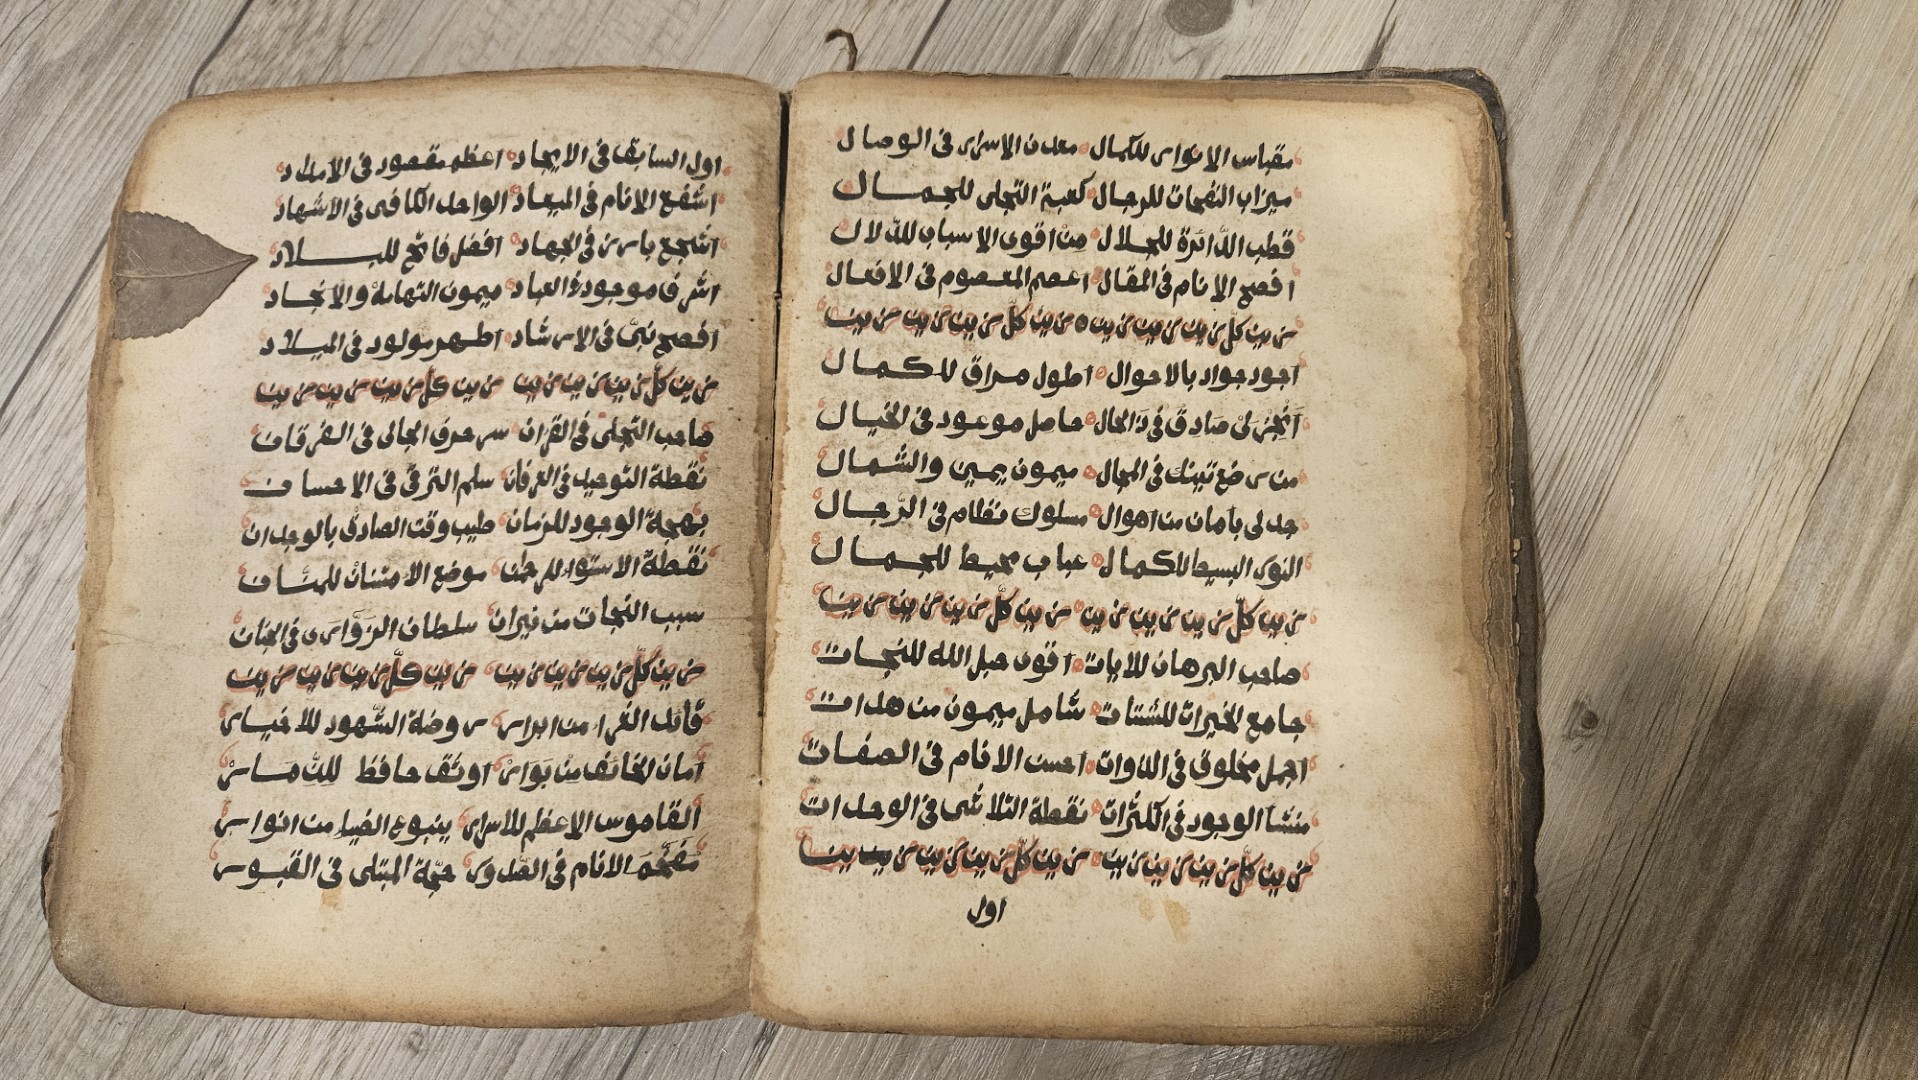 مقباس الانوار للكمال معدن الاسرار فى الوصال
ميزاب النفحات للرجال كعبة التجلى للجمال
قطب الدّائرة للجلال مِنْ اقوى الاسباب للدّلال
افصح الانام فى المقال اعصم المعصوم فى الافعال
زين كلّ زين زين زين زين زين كلّ زين زين زين زين
اجود جواد بالاحوال اطول مراق للكمال
صَادِق فى ذَالحال حامل موعود فى الخيال
من فى المجال ميمون يمين والشمال
جد لى بامان من اهوال مسلوك نظام فى الرّجال
البسيط للكمال عباب محيط للجمال
زين كلّ زين زين زين زين زين كلّ زين زين زين زين
صاحب البرهان للايات اقوى حبل الله للنجات
جامع الخيرات للشتات شامل ميمون من هدات
اجمل مخلوق فى الذوات احسن الانام فى الصفات
منشآ الوجود فى الكثرات نقطة التلاشى فى الوحدات
زين كلّ زين زين زين زين زين كلّ زين زين زين زين
اول
اول السابق فى الايجاد اعظم مقصود فى الامداد
اشفع الانام فى الميعاد الواحد الكافى فى الاشهاد
اشجع بارز فى الجهاد افضل فاتح للبلاد
اشرف موجودة العباد ميمون التهامة والانجاد
افصح نبىّ فى الارشاد اطهر مولود فى الميلاد
زين كلّ زين زين زين زين زين كلّ زين زين زين زين
صاحب التجلى فى القران سر حرف الجالى فى الفرقان
نقطة التوحيد فى العرفان سلم الترقى فى الاحسان
بهجة الوجود للزمان طيب وقت الصادق بالوجدان
نقطة الاستواء للرحمن موضع الامتنان للمنّان
سبب النجات من نيران سلطان الزوّار فى الجنان
زين كلّ زين زين زين زين زين كلّ زين زين زين زين
قائد الغراء من ابرار روضة الشّهود للاخيار
امان الخائف من بَوَارْ اوثق حافظ لِلذّمارْ
القاموس الاعظم للاسرار ينبوع الضياء من انوار
الانام فى الصّدور حجّة المبتلى فى القبور